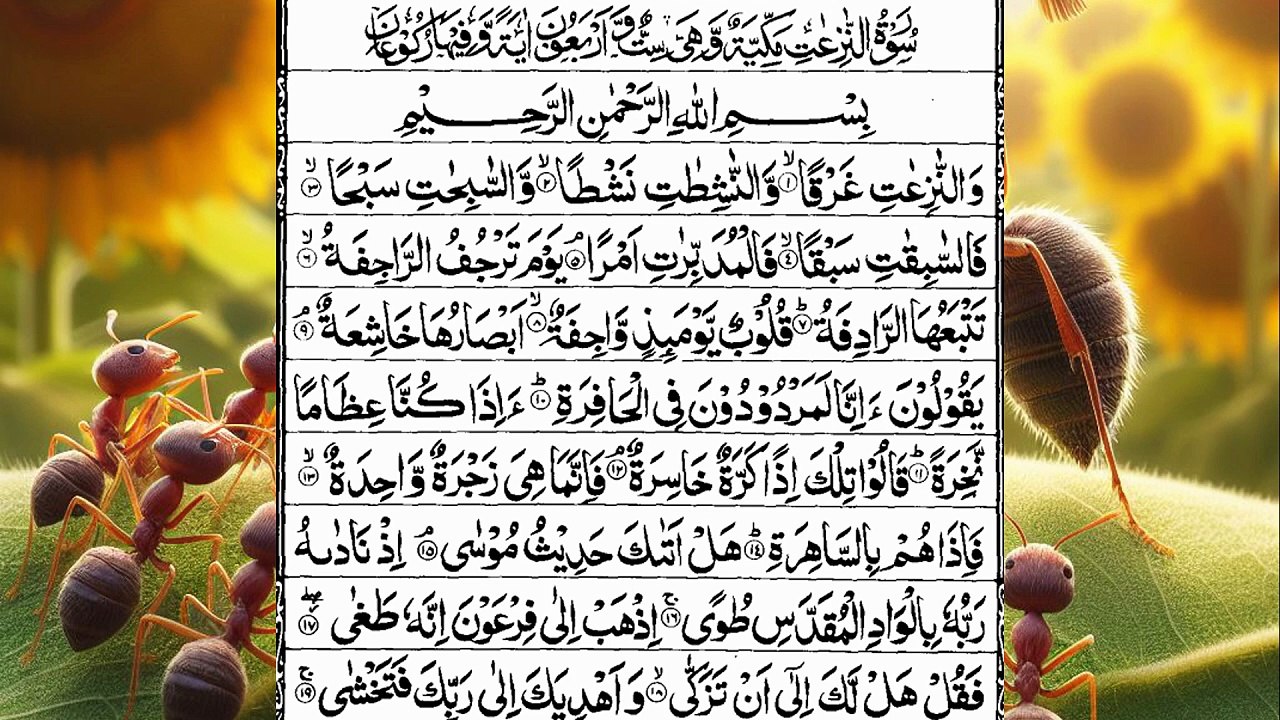 سُوْرَةُ النّٰزِعٰتِ مَكِّيَّةٌ وَّهِيَ سِتٌّ وَّاَرْبَعُوْنَ اٰيَةً وَّفِيْهَا رُكُوْعَانِ
بِسْمِ اللّٰهِ الرَّحْمٰنِ الرَّحِيْمِ
وَالنّٰزِعٰتِ غَرْقًا ۙ﴿۱﴾ وَّالنّٰشِطٰتِ نَشْطًا ۙ﴿۲﴾ وَّالسّٰبِحٰتِ سَبْحًا ۙ﴿۳﴾
فَالسّٰبِقٰتِ سَبْقًا ۙ﴿۴﴾ فَالْمُدَبِّرٰتِ اَمْرًا ۘ﴿۵﴾ يَوْمَ تَرْجُفُ الرَّاجِفَةُ ۙ﴿۶﴾
تَتْبَعُهَا الرَّادِفَةُ ؕ﴿۷﴾ قُلُوْبٌ يَّوْمَىِٕذٍ وَّاجِفَةٌ ۙ﴿۸﴾ اَبْصَارُهَا خَاشِعَةٌ ۘ﴿۹﴾
يَقُوْلُوْنَ ءَاِنَّا لَمَرْدُوْدُوْنَ فِي الْحَافِرَةِ ؕ﴿۱۰﴾ ءَاِذَا كُنَّا عِظَامًا
نَّخِرَةً ؕ﴿۱۱﴾ قَالُوْا تِلْكَ اِذًا كَرَّةٌ خَاسِرَةٌ ۘ﴿۱۲﴾ فَاِنَّمَا هِيَ زَجْرَةٌ وَّاحِدَةٌ ۙ﴿۱۳﴾
فَاِذَا هُمْ بِالسَّاهِرَةِ ؕ﴿۱۴﴾ هَلْ اَتٰىكَ حَدِيْثُ مُوْسٰى ۘ﴿۱۵﴾ اِذْ نَادٰىهُ
رَبُّهٗ بِالْوَادِ الْمُقَدَّسِ طُوًى ۚ﴿۱۶﴾ اِذْهَبْ اِلٰى فِرْعَوْنَ اِنَّهٗ طَغٰى ۖ﴿۱۷﴾
فَقُلْ هَلْ لَّكَ اِلٰۤى اَنْ تَزَكّٰى ۙ﴿۱۸﴾ وَاَهْدِيَكَ اِلٰى رَبِّكَ فَتَخْشٰى ۚ﴿۱۹﴾